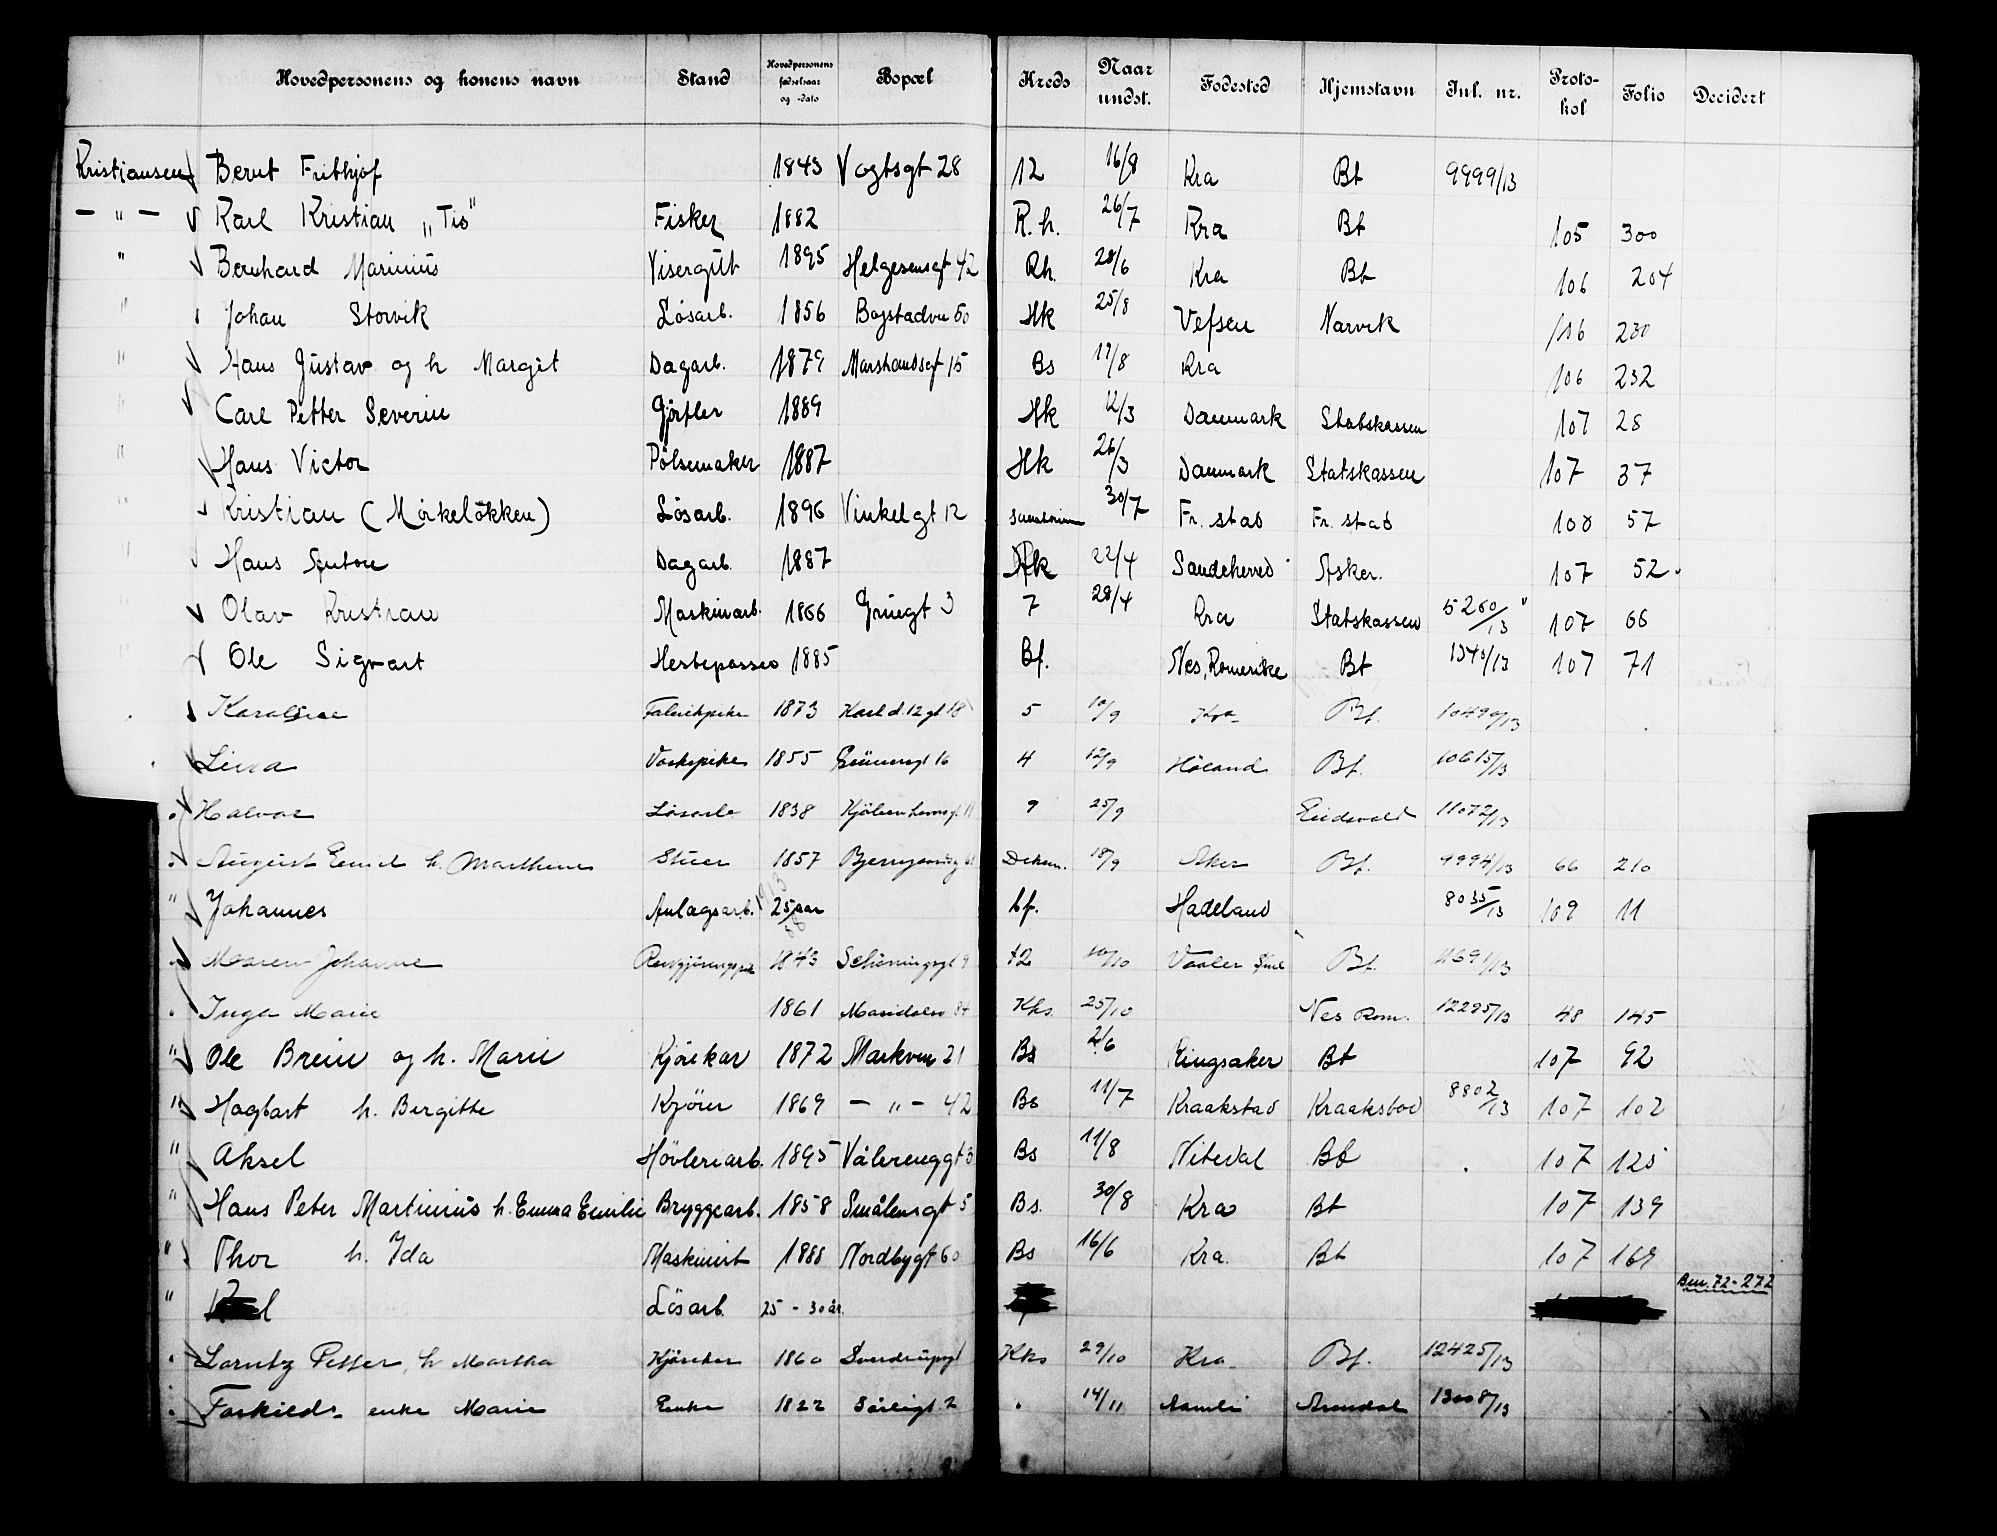 Hovedpersonens og konens navn Stand Hovedpersonens fødselsaar og -dato Bopæl Kreds Naar undst. Fødested Hjemstavn Jnl. nr. Proto-kol Folio Decidert
Kristiansen Bernt Frithjof 1843 Vogtsgt 28 12 16/8 Kra Bt 9999/13
— " — Karl Kristian „Tis" Fisker 1882 R.h. 26/7 Kra Bt 105 300
" Bernhard Marinius Visergut 1895 Helgesensgt 42 Rh. 28/6 Kra Bt 106 204
" Johan Storvik Løsarb. 1856 Bogstadvn 50 Hk 25/8 Vefsen Narvik 106 230
" Hans Gustav og h Margit Dagarb. 1879 15 Bs 19/8 Kra 106 232
" Carl Petter Severin Gjørtler 1889 Hk 12/3 Danmark Statskassen 107 28
" Hans Victor Pølsemaker 1887 Hk 26/3 Danmark Statskassen 107 37
" Kristian (Mørkeløkken) Løsarb. 1896 Vinkelgt 12 30/7 Fr. stad Fr. stad 108 57
" Hans Dagarb. 1887 Hk 22/4 Sandeherred Asker. 107 52
" Olav Kristian Maskinarb. 1866 Gruegt 3 7 28/4 Kra Statskassen 5260/13 107 66
Ole Sigvart Hestepasser 1885 Bf. Nes, Romerike Bt 1340/13 107 71
Karoline Fabrikpike 1873 Karl d. 12 gt 18 5 10/9 Kra Bf. 10490/13
Lina Vaskepike 1855 16 4 12/9 Høland Bf. 10615/13
Halvor Løsarb 1838 Kjøbenhavnsgt 11 9 25/9 Eidsvold 11072/13
August Emil h. Marthine Stuer 1857 18/9 Aker Bf. 9994/13 66 210
" Johannes Anlægsarb. 25 aar 1913/88 Lf. Hadeland 8035/13 109 11
Maren Johanne 1843 Schøningsgt 9 12 10/10 Vaaler Bf. 11691/13
Inga Marie 1861 Maridalsv 84 Kks. 25/10 Nes Rom. 12295/13 48 145
" Ole Brein og h. Marie Kjørekar 1872 Markven 21 Bs 2/6 Ringsaker Bt 107 92
" Hagbart h. Bergitte Kjører 1869 — " — 42 Bs 11/7 Kraakstad Kraakstad 8802/13 107 102
" Aksel Høvleriarb. 1895 Vålerenggt 3 Bs 11/8 Nitedal Bt 107 125
" Hans Peter Martinius h. Emma Emilie Bryggearb. 1858 Smålensgt 5 Bs. 30/8 Kra Bt 107 139
" Thor h. Ida Maskinist 1888 Nordbygt 60 Bs 16/6 Kra. Bt 107 169
" Løsarb. 25 - 30 år. Ben. 72-272
Lorentz Petter, h Martha Kjørekar 1860 Sverdrupsgt Kks 29/10 Kra. Bf. 12425/13
Torkilds enke Marie Enke 1822 2 14/11 Aamli Arendal 13008/13